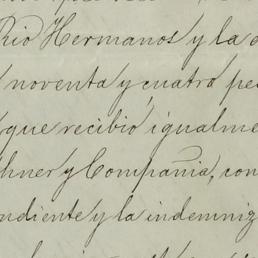 Rio Hermanos y la
noventa y cuatro pe
que recibió igualme
hner y Compañia, con
ndiente y la indemniz